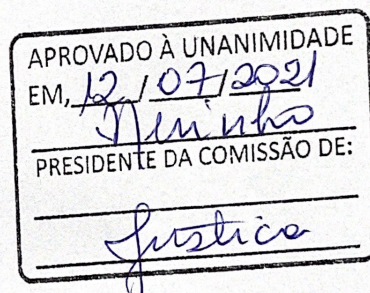 APROVADO À UNANIMIDADE
EM, 12 / 07 / 2021
Nerinho
PRESIDENTE DA COMISSÃO DE:
Justica